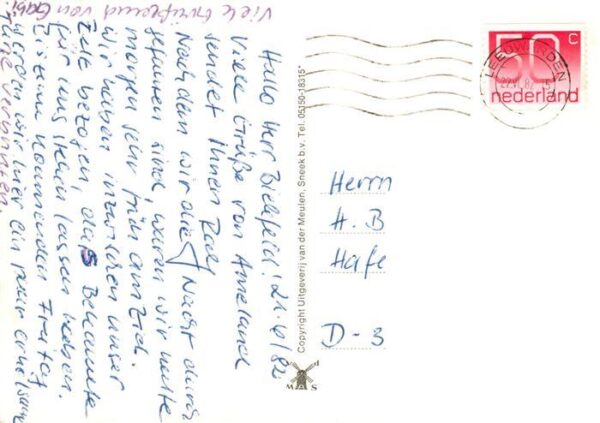 Hallo Herr Bielfeld! 21.6/82
Viele Grüße von Ameland
sendet Ihnen Rolf
Nachdem wir die Nacht durch
gefahren sind, waren wir heute
morgen sehr früh am Ziel.
Wir haben inzwischen unser
Zelt bezogen, das Bekannte
für uns stehen lassen haben.
Bis zum kommenden Freitag
werden wir hier ein paar erholsame
Tage verbringen.
Viele von Gabi
Copyright Uitgeverij van der Meulen, Sneek b.v. Tel. 05150-18315*
MAS
50 c
nederland
LEEUWARDEN
Herrn
H. B
Hafe
D-3